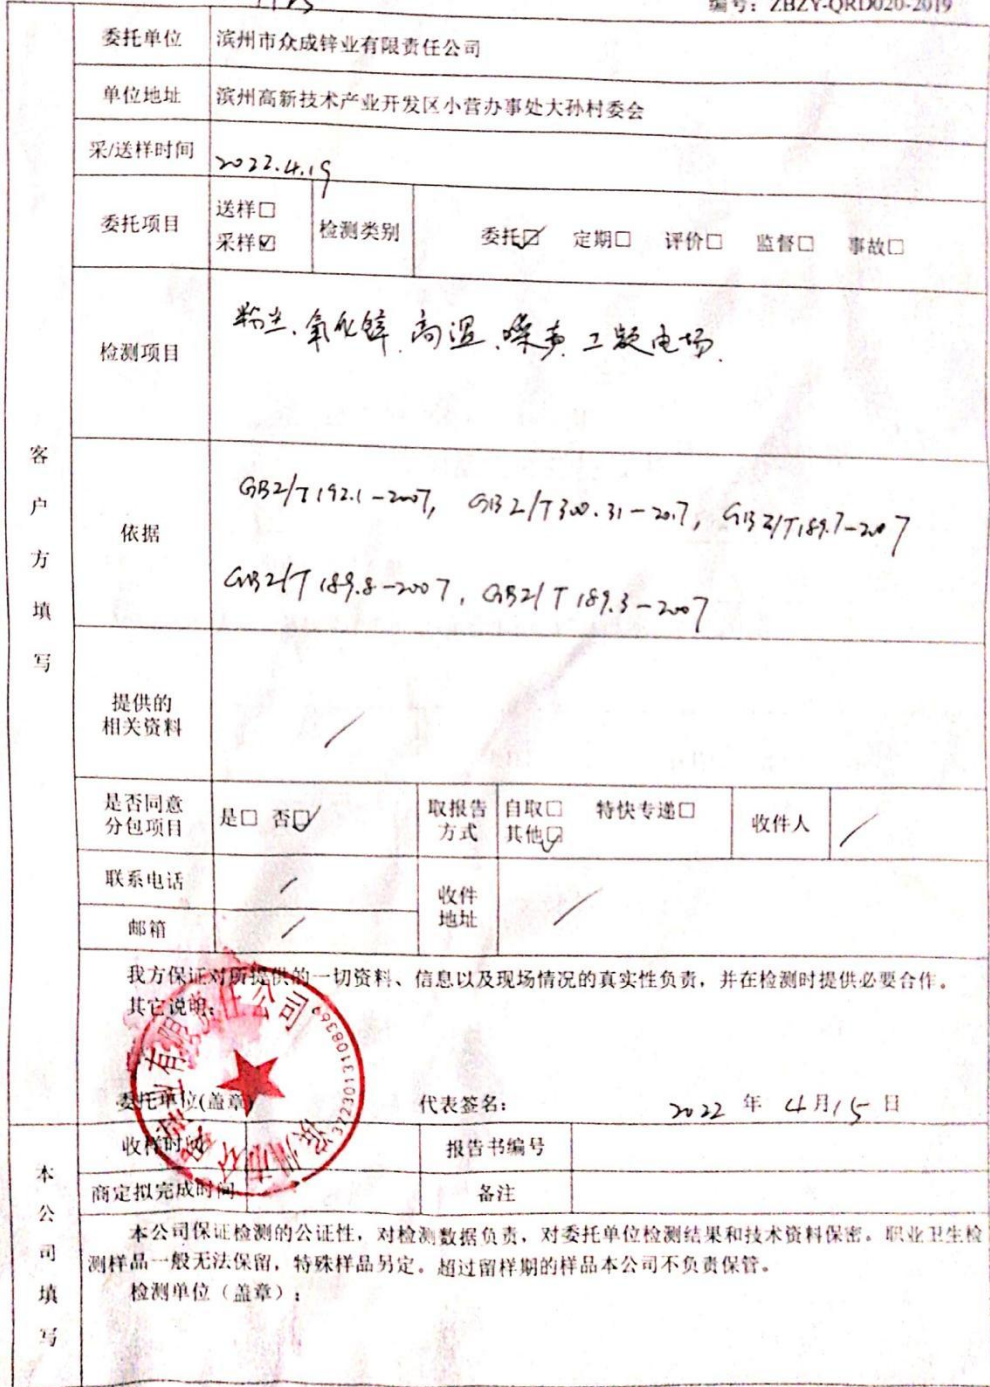 编号：ZBZY-QRD020-2019
委托单位 滨州市众成锌业有限责任公司
单位地址 滨州高新技术产业开发区小营办事处大孙村委会
采/送样时间 2022.4.19
委托项目 送样□ 采样☑ 检测类别 委托☑ 定期□ 评价□ 监督□ 事故□
检测项目 粉尘、氧化锌、高温、噪声、工频电场
客户方填写
依据 GBZ/T192.1-2007, GBZ/T300.31-2017, GBZ/T189.7-2007
GBZ/T 189.8-2007, GBZ/T 189.3-2007
提供的相关资料 /
是否同意分包项目 是□ 否☑ 取报告方式 自取□ 特快专递□ 其他☑ 收件人 /
联系电话 / 收件地址 /
邮箱 /
我方保证对所提供的一切资料、信息以及现场情况的真实性负责，并在检测时提供必要合作。
其它说明：
委托单位(盖章) 代表签名： 2022 年 4月15 日
滨州市众成锌业有限责任公司
3723013108369
收样时间 报告书编号
商定拟完成时间 备注
本公司填写
本公司保证检测的公证性，对检测数据负责，对委托单位检测结果和技术资料保密。职业卫生检
测样品一般无法保留，特殊样品另定。超过留样期的样品本公司不负责保管。
检测单位（盖章）：